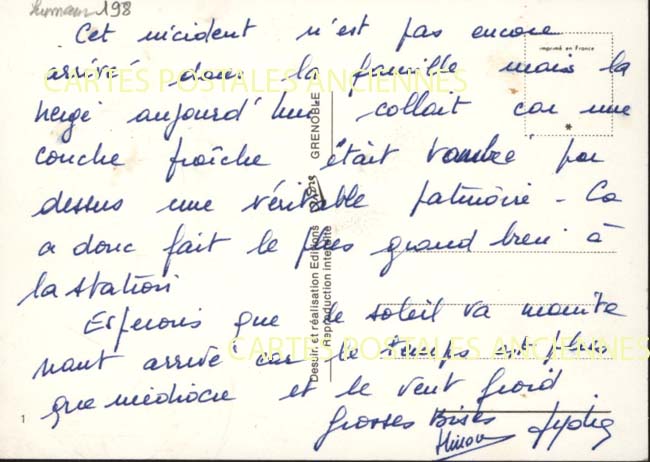 198
Cet incident n'est pas encore
imprimé en France
arrivé dans la famille mais la
CARTES POSTALES ANCIENNES
neige aujourd'hui collait car une
couche fraîche était tombée par
dessus une véritable patinoire - Ca
a donc fait le plus grand bien à
la station
Esperons que le soleil va mainte
nant arrivé car le temps est plus
CARTES POSTALES ANCIENNES
que médiocre et le vent froid.
Grosses Bises
1
Dessin et réalisation Editions GRENOBLE
Reproduction interdite